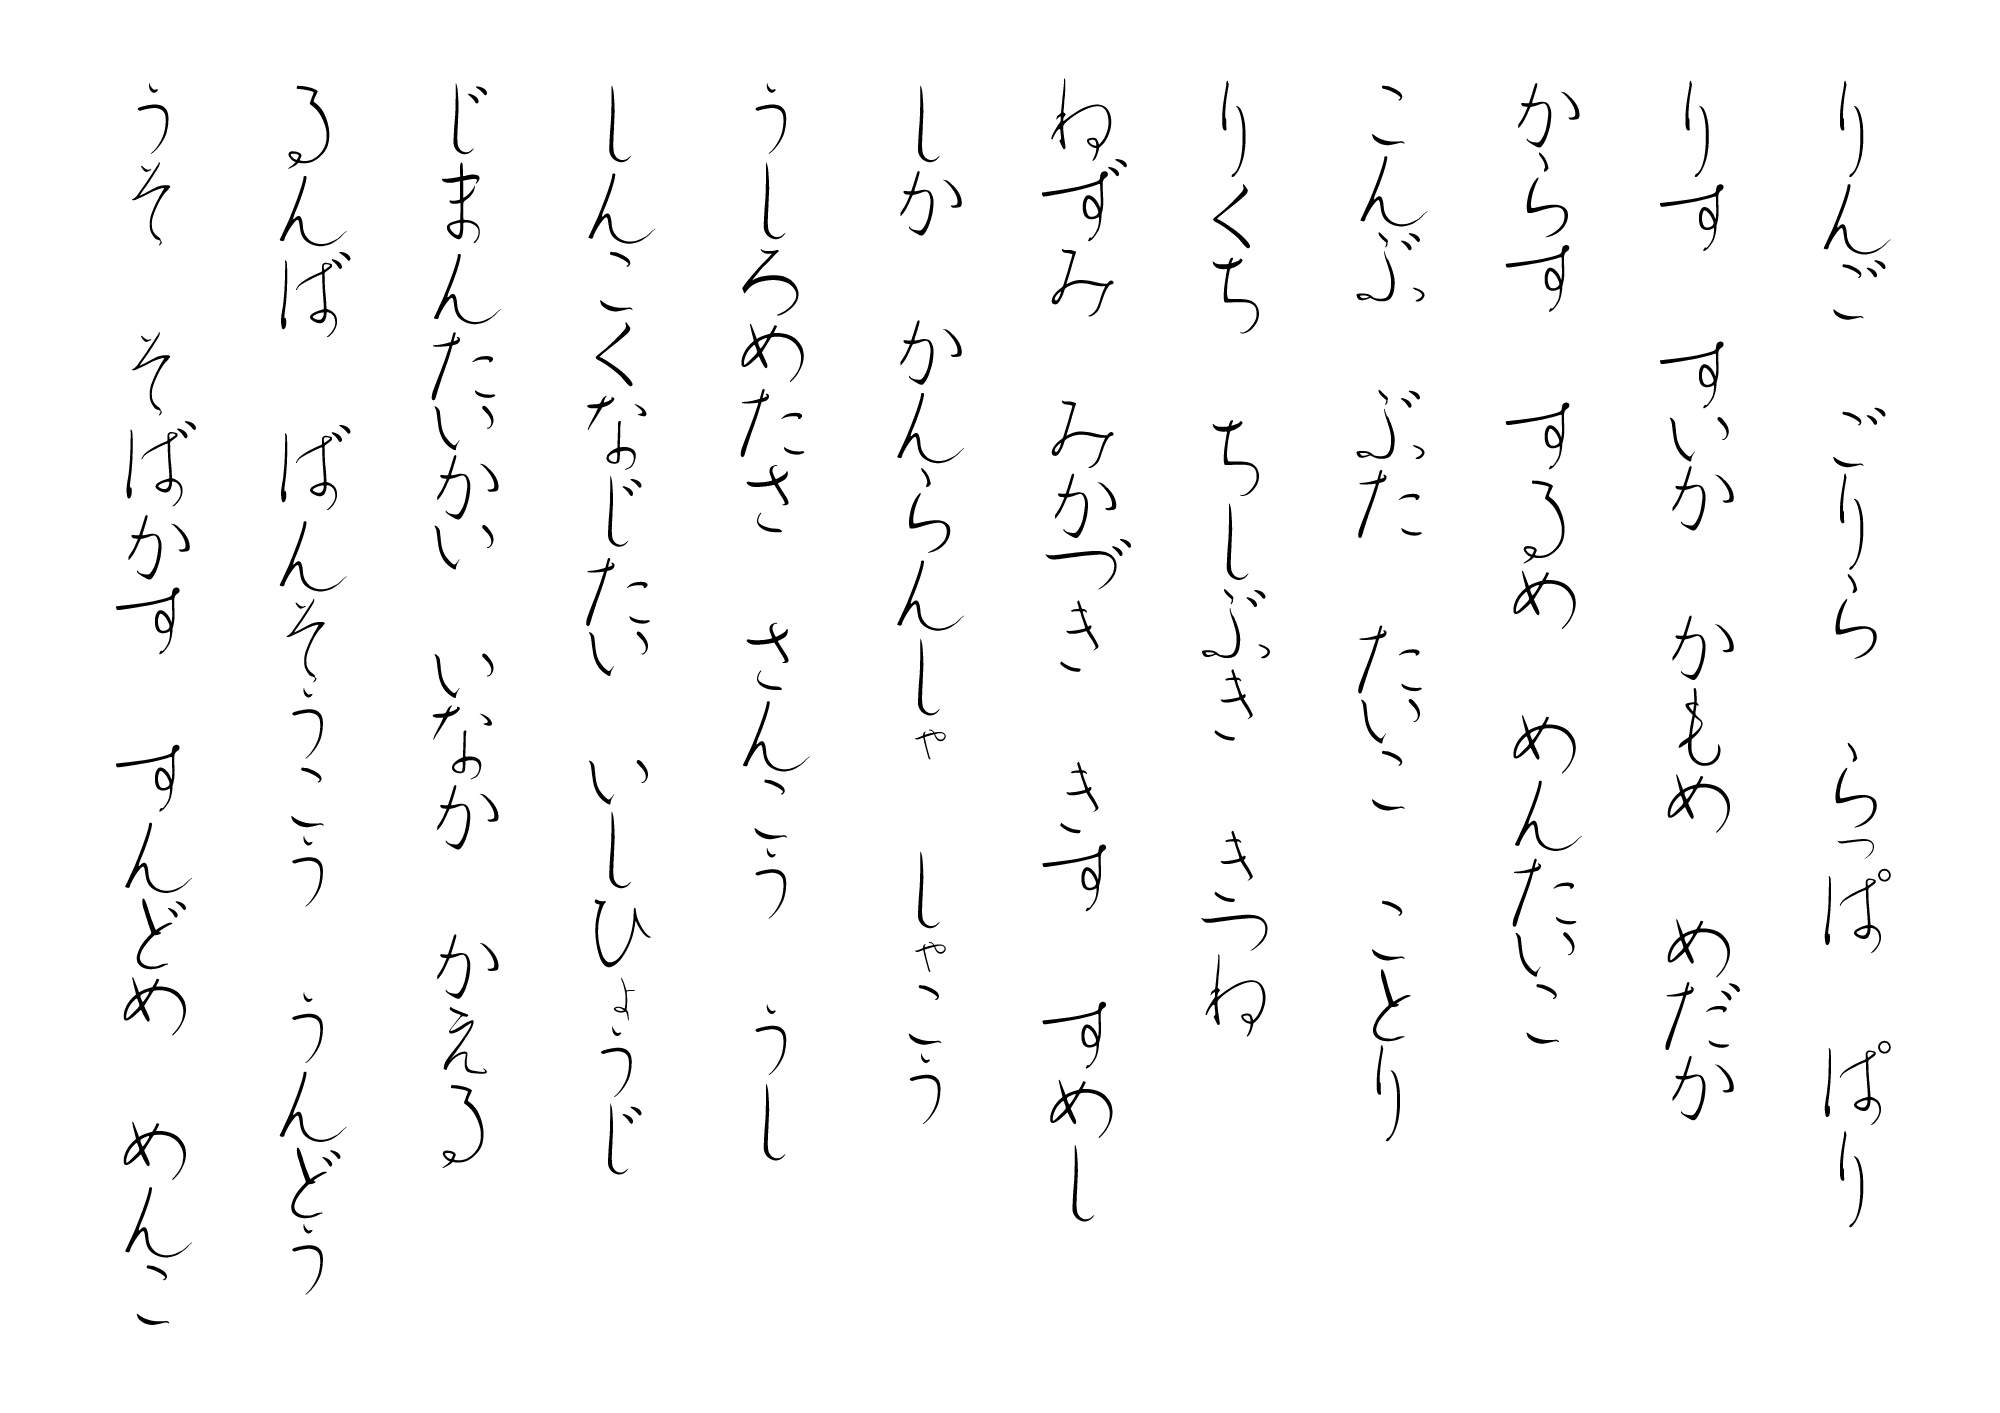 りんご　ごりら　らっぱ　ぱり
りす　すいか　かもめ　めだか
からす　するめ　めんたいこ
こんぶ　ぶた　たいこ　ことり
りくち　ちしぶき　きつね
ねずみ　みかづき　きす　すめし
しか　かんらんしゃ　しゃこう
うしろめたさ　さんこう　うし
しんこくなじたい　いしひょうじ
じまんたいかい　いなか　かえる
るんば　ばんそうこう　うんどう
うそ　そばかす　すんどめ　めんこ